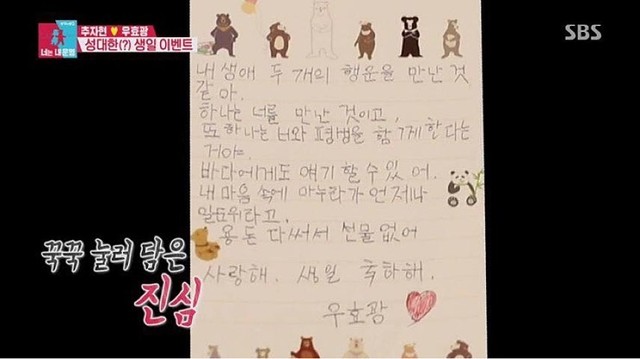 추자현 ♥ 우효광
성대한(?) 생일 이벤트
너는 내 운명
SBS
내 생애 두 개의 행운을 만난 것
같아.
하나는 너를 만난 것이고,
또 하나는 너와 평범을 함께한다는
거야.
바다에게도 얘기 할 수 있어.
내 마음 속에 마누라가 언제나
일도위라고.
용돈 다써서 선물없어
사랑해. 생일 축하해.
우효광
꾹꾹 눌러 담은
진심